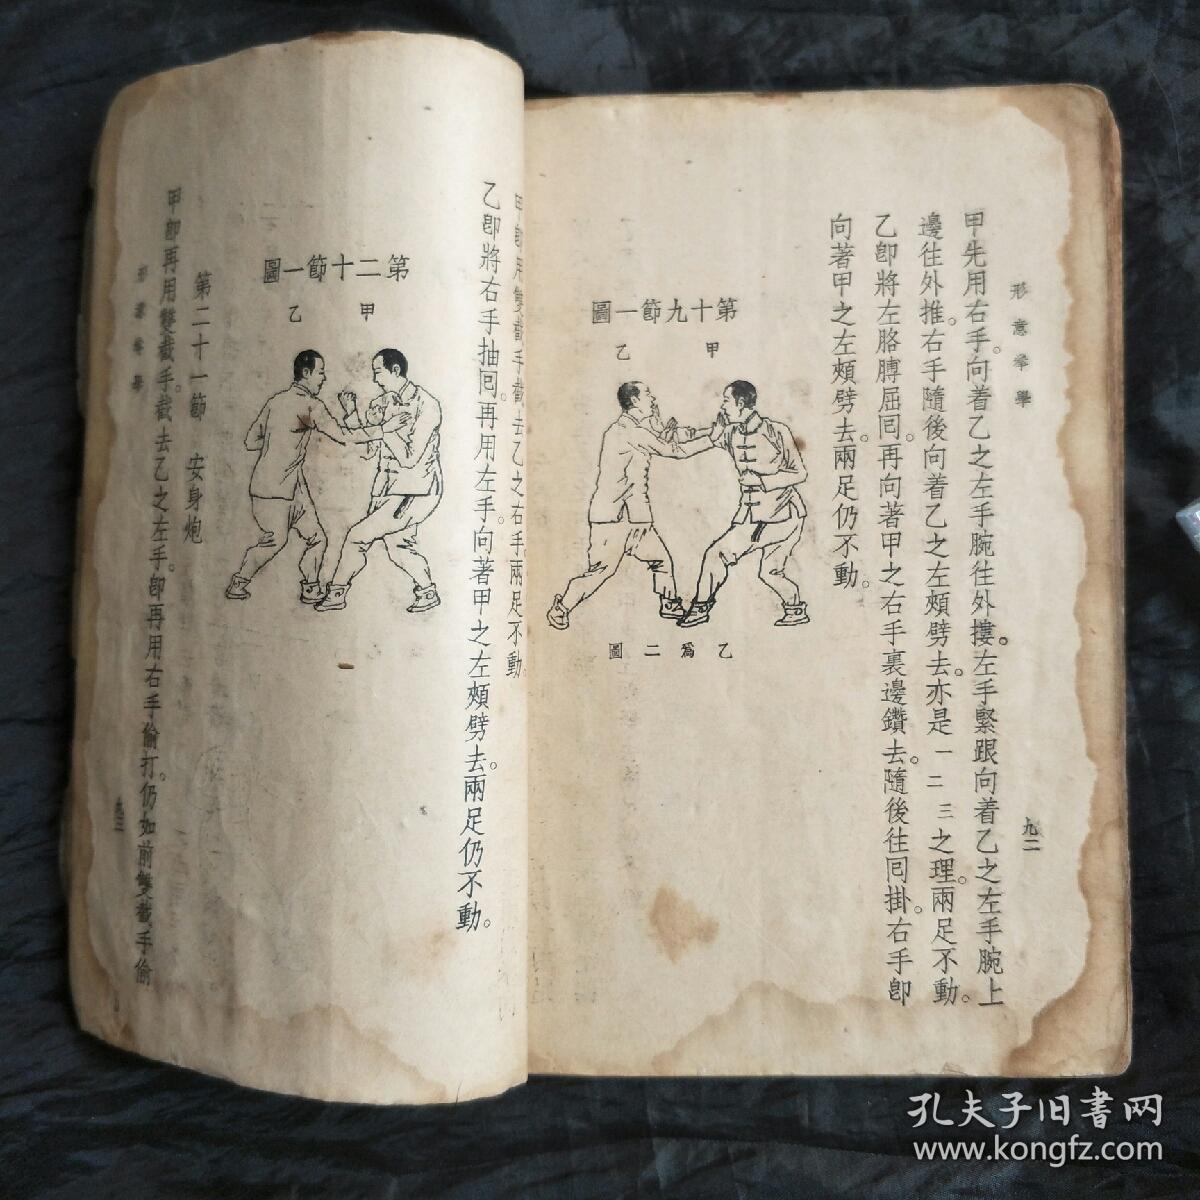 形意拳學
九二
甲先用右手。向着乙之左手腕往外摟。左手緊跟向着乙之左手腕上
邊往外推。右手隨後向着乙之左頰劈去。亦是一二三之理。兩足不動。
乙卽將左胳膊屈囘。再向著甲之右手裏邊鑽去。隨後往囘掛。右手卽
向著甲之左頰劈去。兩足仍不動。
第十九節一圖
甲
乙
乙爲二圖
用雙截手截去乙之右手。兩足不動。
乙卽將右手抽囘。再用左手。向著甲之左頰劈去。兩足仍不動。
第二十節一圖
甲
乙
第二十一節 安身炮
甲卽再用雙截手。截去乙之左手。卽再用右手偷打。仍如前雙截手偷
形意拳學
孔夫子旧書网
www.kongfz.com